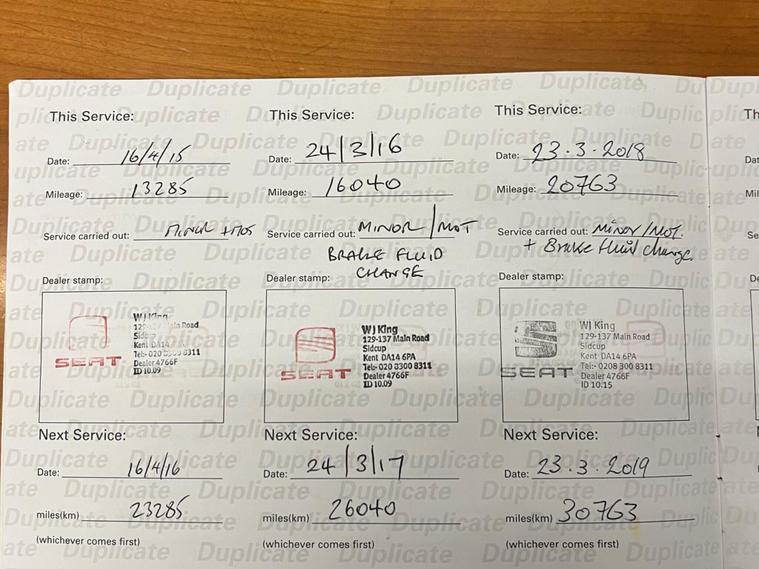 This Service:
Date: 16/4/15
Mileage: 13285
Service carried out: MINOR + MOT
Dealer stamp:
WJ King
Main Road
Sidcup
Kent DA14
Tel:- 020 8300 8311
Dealer 4766F
ID 10.09
SEAT
Next Service:
Date: 16/4/16
miles(km) 23285
(whichever comes first)
This Service:
Date: 24/3/16
Mileage: 16040
Service carried out: MINOR/MOT
BRAKE FLUID
CHANGE
Dealer stamp:
WJ King
129-137 Main Road
Sidcup
Kent DA14 6PA
Tel:- 020 8300 8311
Dealer 4766F
ID 10.09
SEAT
Next Service:
Date: 24/3/17
miles(km) 26040
(whichever comes first)
This Service:
Date: 23.3.2018
Mileage: 20763
Service carried out: Minor/MOT.
+ Brake fluid change
Dealer stamp:
WJ King
129-137 Main Road
Sidcup
Kent DA14 6PA
Tel:- 0208 300 8311
Dealer 4766F
ID 10.15
SEAT
Next Service:
Date: 23.3.2019
miles(km) 30763
(whichever comes first)